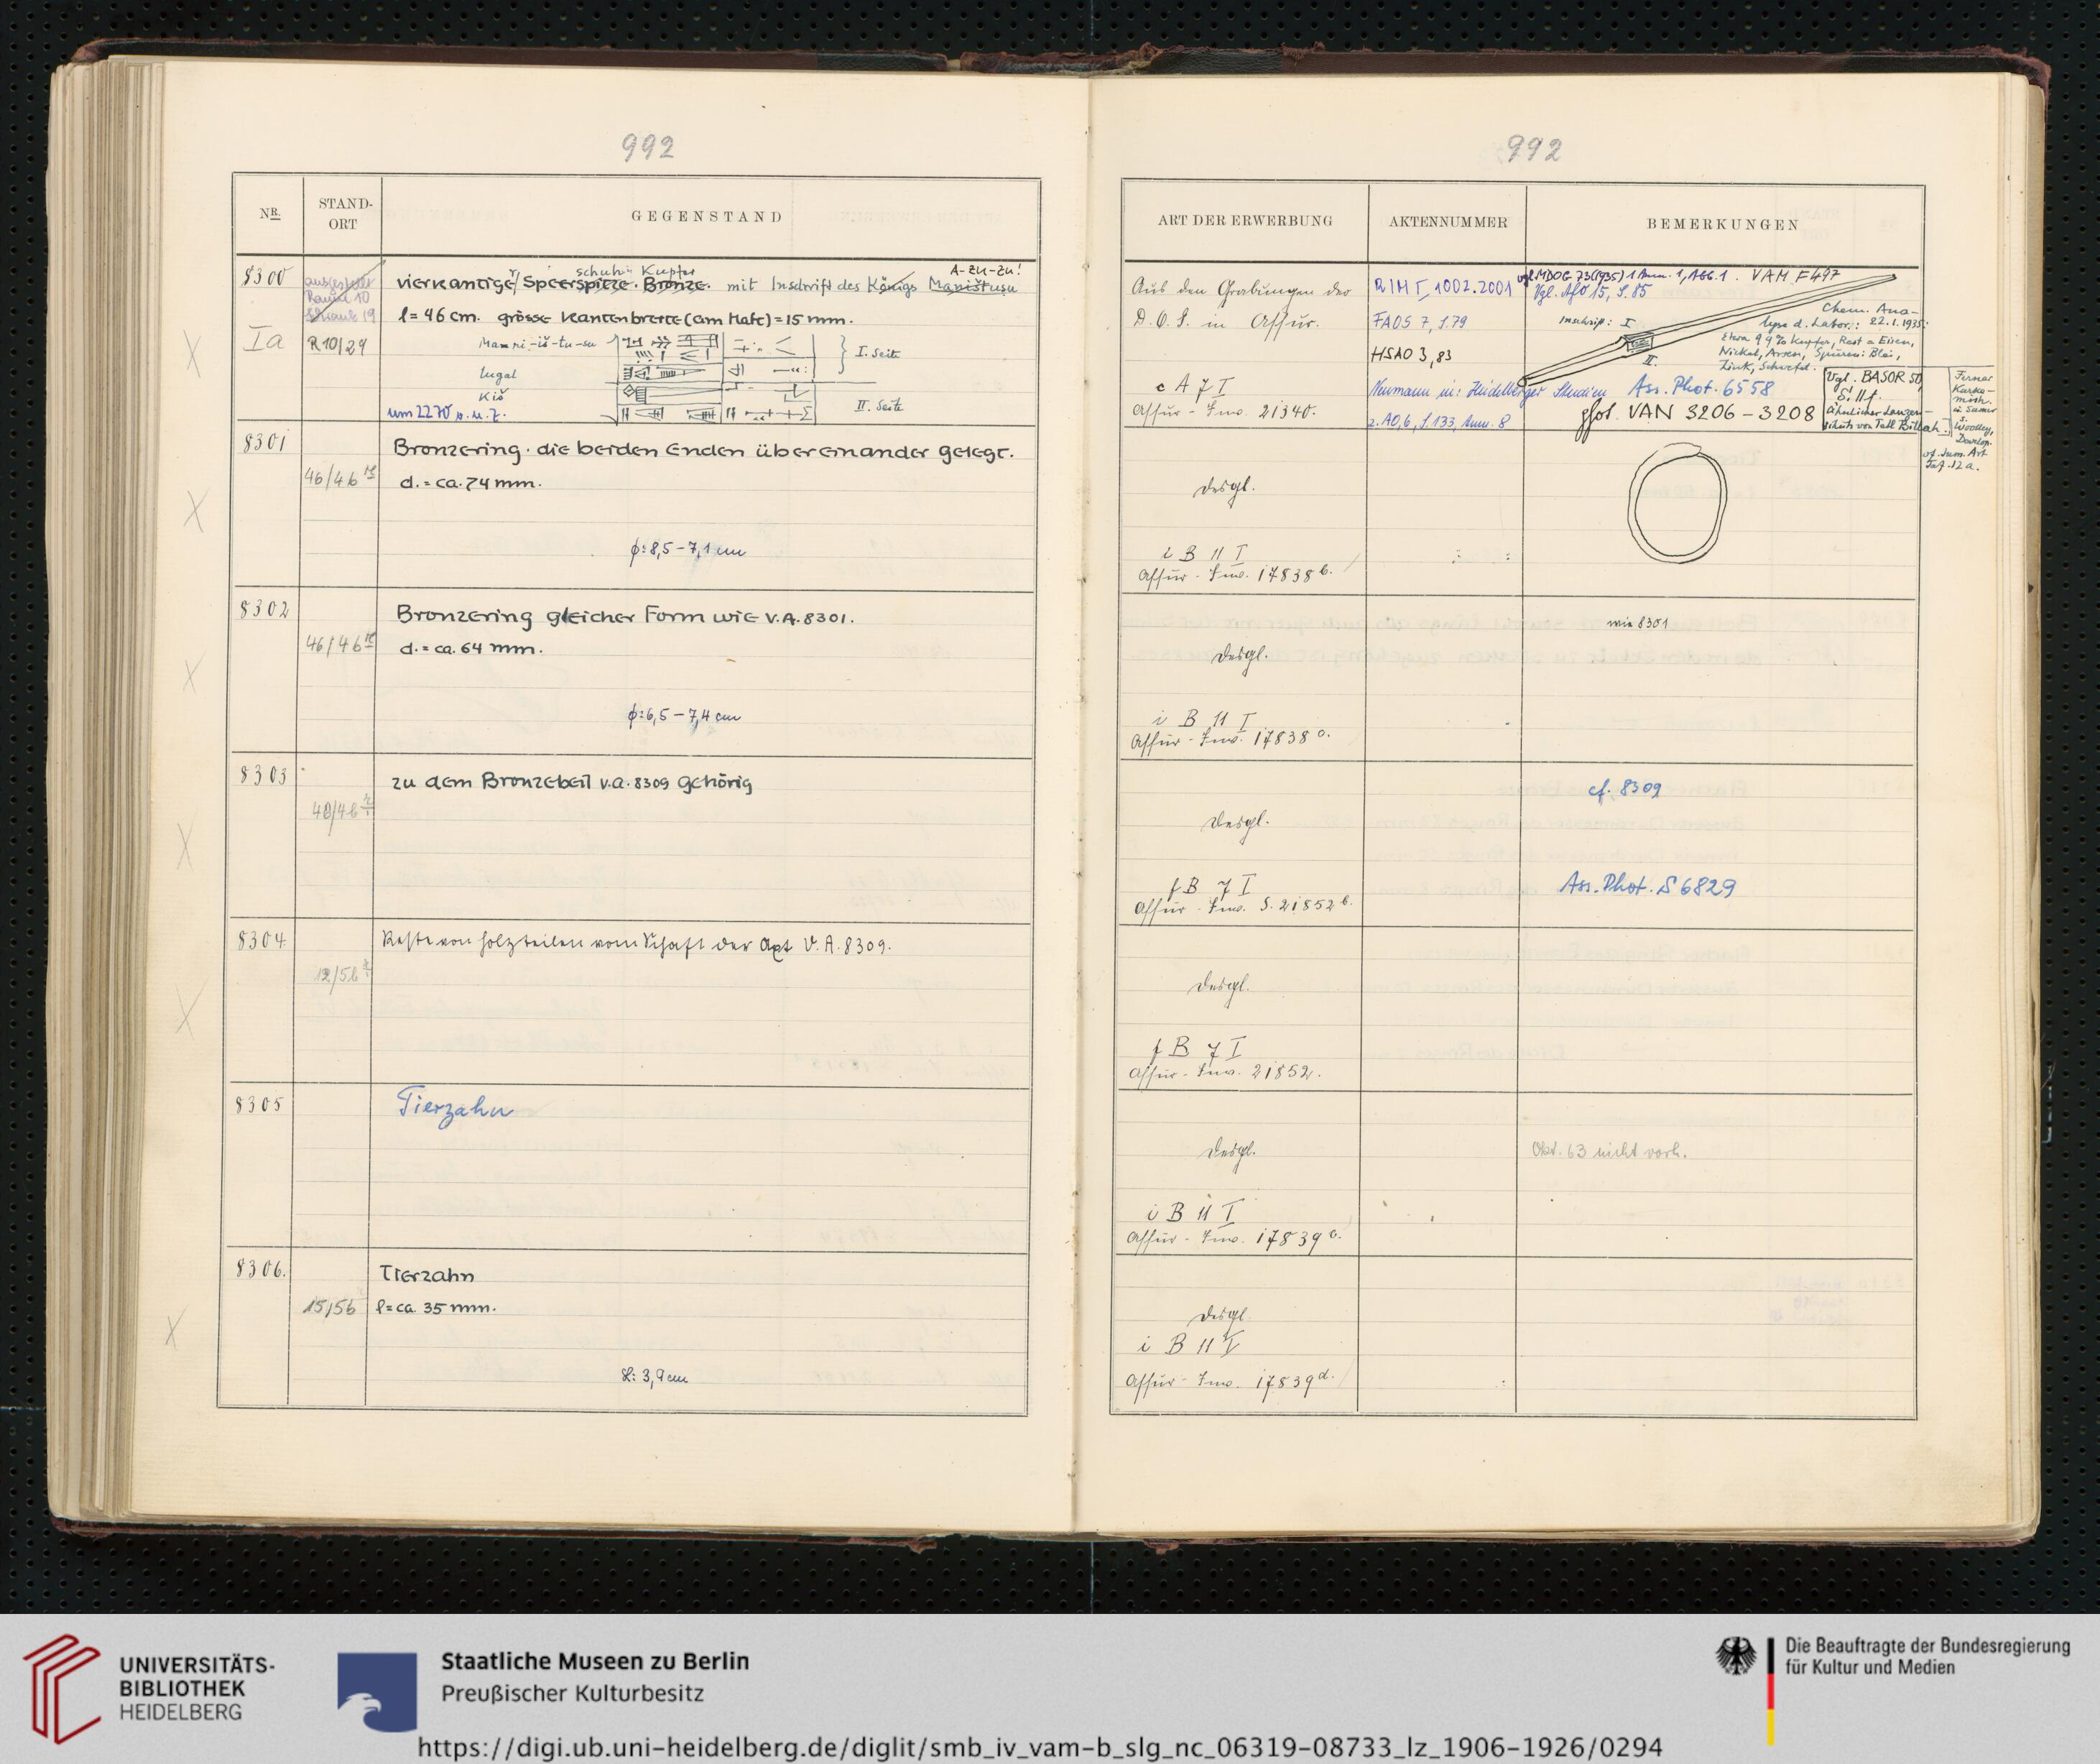 992
NR.
STAND-
ORT
GEGENSTAND
8300
Ia
ausgestellt
Raum 10
Schrank 19
R10/29
schuh Kupfer
A-zu-zu!
vierkantiger Speerspitze. Bronze. mit Inschrift des Königs Maništusu
l = 46 cm. grösse Kantenbreite (am Heft) = 15 mm.
Man ni-iš-tu-su
I. Seite
lugal
Kiš
II. Seite
um 2270 v. u. Z.
8301
46/4b
Bronzering. die beiden Enden übereinander gelegt.
d. = ca. 74 mm.
ϕ: 8,5 – 7,1 cm
8302
46/4b
Bronzering gleicher Form wie V.A. 8301.
d. = ca. 64 mm.
ϕ: 6,5 – 7,4 cm
8303
zu dem Bronzebeil V.A. 8309 gehörig
8304
12/5b
Reste von Holzteilen vom Schaft der Axt V.A. 8309.
8305
Tierzahn
8306.
15/5b
Tierzahn
l = ca. 35 mm.
L: 3,9 cm
992
ART DER ERWERBUNG
AKTENNUMMER
BEMERKUNGEN
Aus den Grabungen der
D.O.G. in Assur.
c A 7 I
Assur - Inv. 21340.
RIM I, 1002.2001
FAOS 7, S.79
HSAO 3, 83
Neumann in: Heidelberger Studien
z. AO, 6, S. 133, Anm. 8
vgl. MDOG 73 (1935) 1 Anm. 1, Abb. 1. VAM F 497
Vgl. AfO 15, S. 85
Inschrift: I
II.
Chem. Ana-
lyse d. Labor.: 22.1.1935:
Etwa 99% Kupfer, Rest = Eisen,
Nickel, Arsen, Spuren: Blei,
Zink, Schwefel.
Ass. Phot. 6558
phot. VAN 3206 – 3208
Vgl. BASOR 50,
S. 11f.
ähnlicher Lanzen-
schuh von Tell Billah.
Ferner
Karke-
misch.
s.
Woolley,
Develop.
of Sum. Art
Taf. 12a.
Desgl.
i B 11 I
Assur - Inv. 17838 b.
Desgl.
i B 11 I
Assur - Inv. 17838 c.
wie 8301
Desgl.
f B 7 I
Assur - Inv. S. 21852 b.
cf. 8309
Ass. Phot. S 6829
Desgl.
f B 7 I
Assur - Inv. 21852.
Desgl.
i B 11 I
Assur - Inv. 17839 c.
Okt. 63 nicht vorh.
Desgl.
i B 11 I
Assur - Inv. 17839 d.
UNIVERSITÄTS-
BIBLIOTHEK
HEIDELBERG
Staatliche Museen zu Berlin
Preußischer Kulturbesitz
Die Beauftragte der Bundesregierung
für Kultur und Medien
https://digi.ub.uni-heidelberg.de/diglit/smb_iv_vam-b_slg_nc_06319-08733_lz_1906-1926/0294